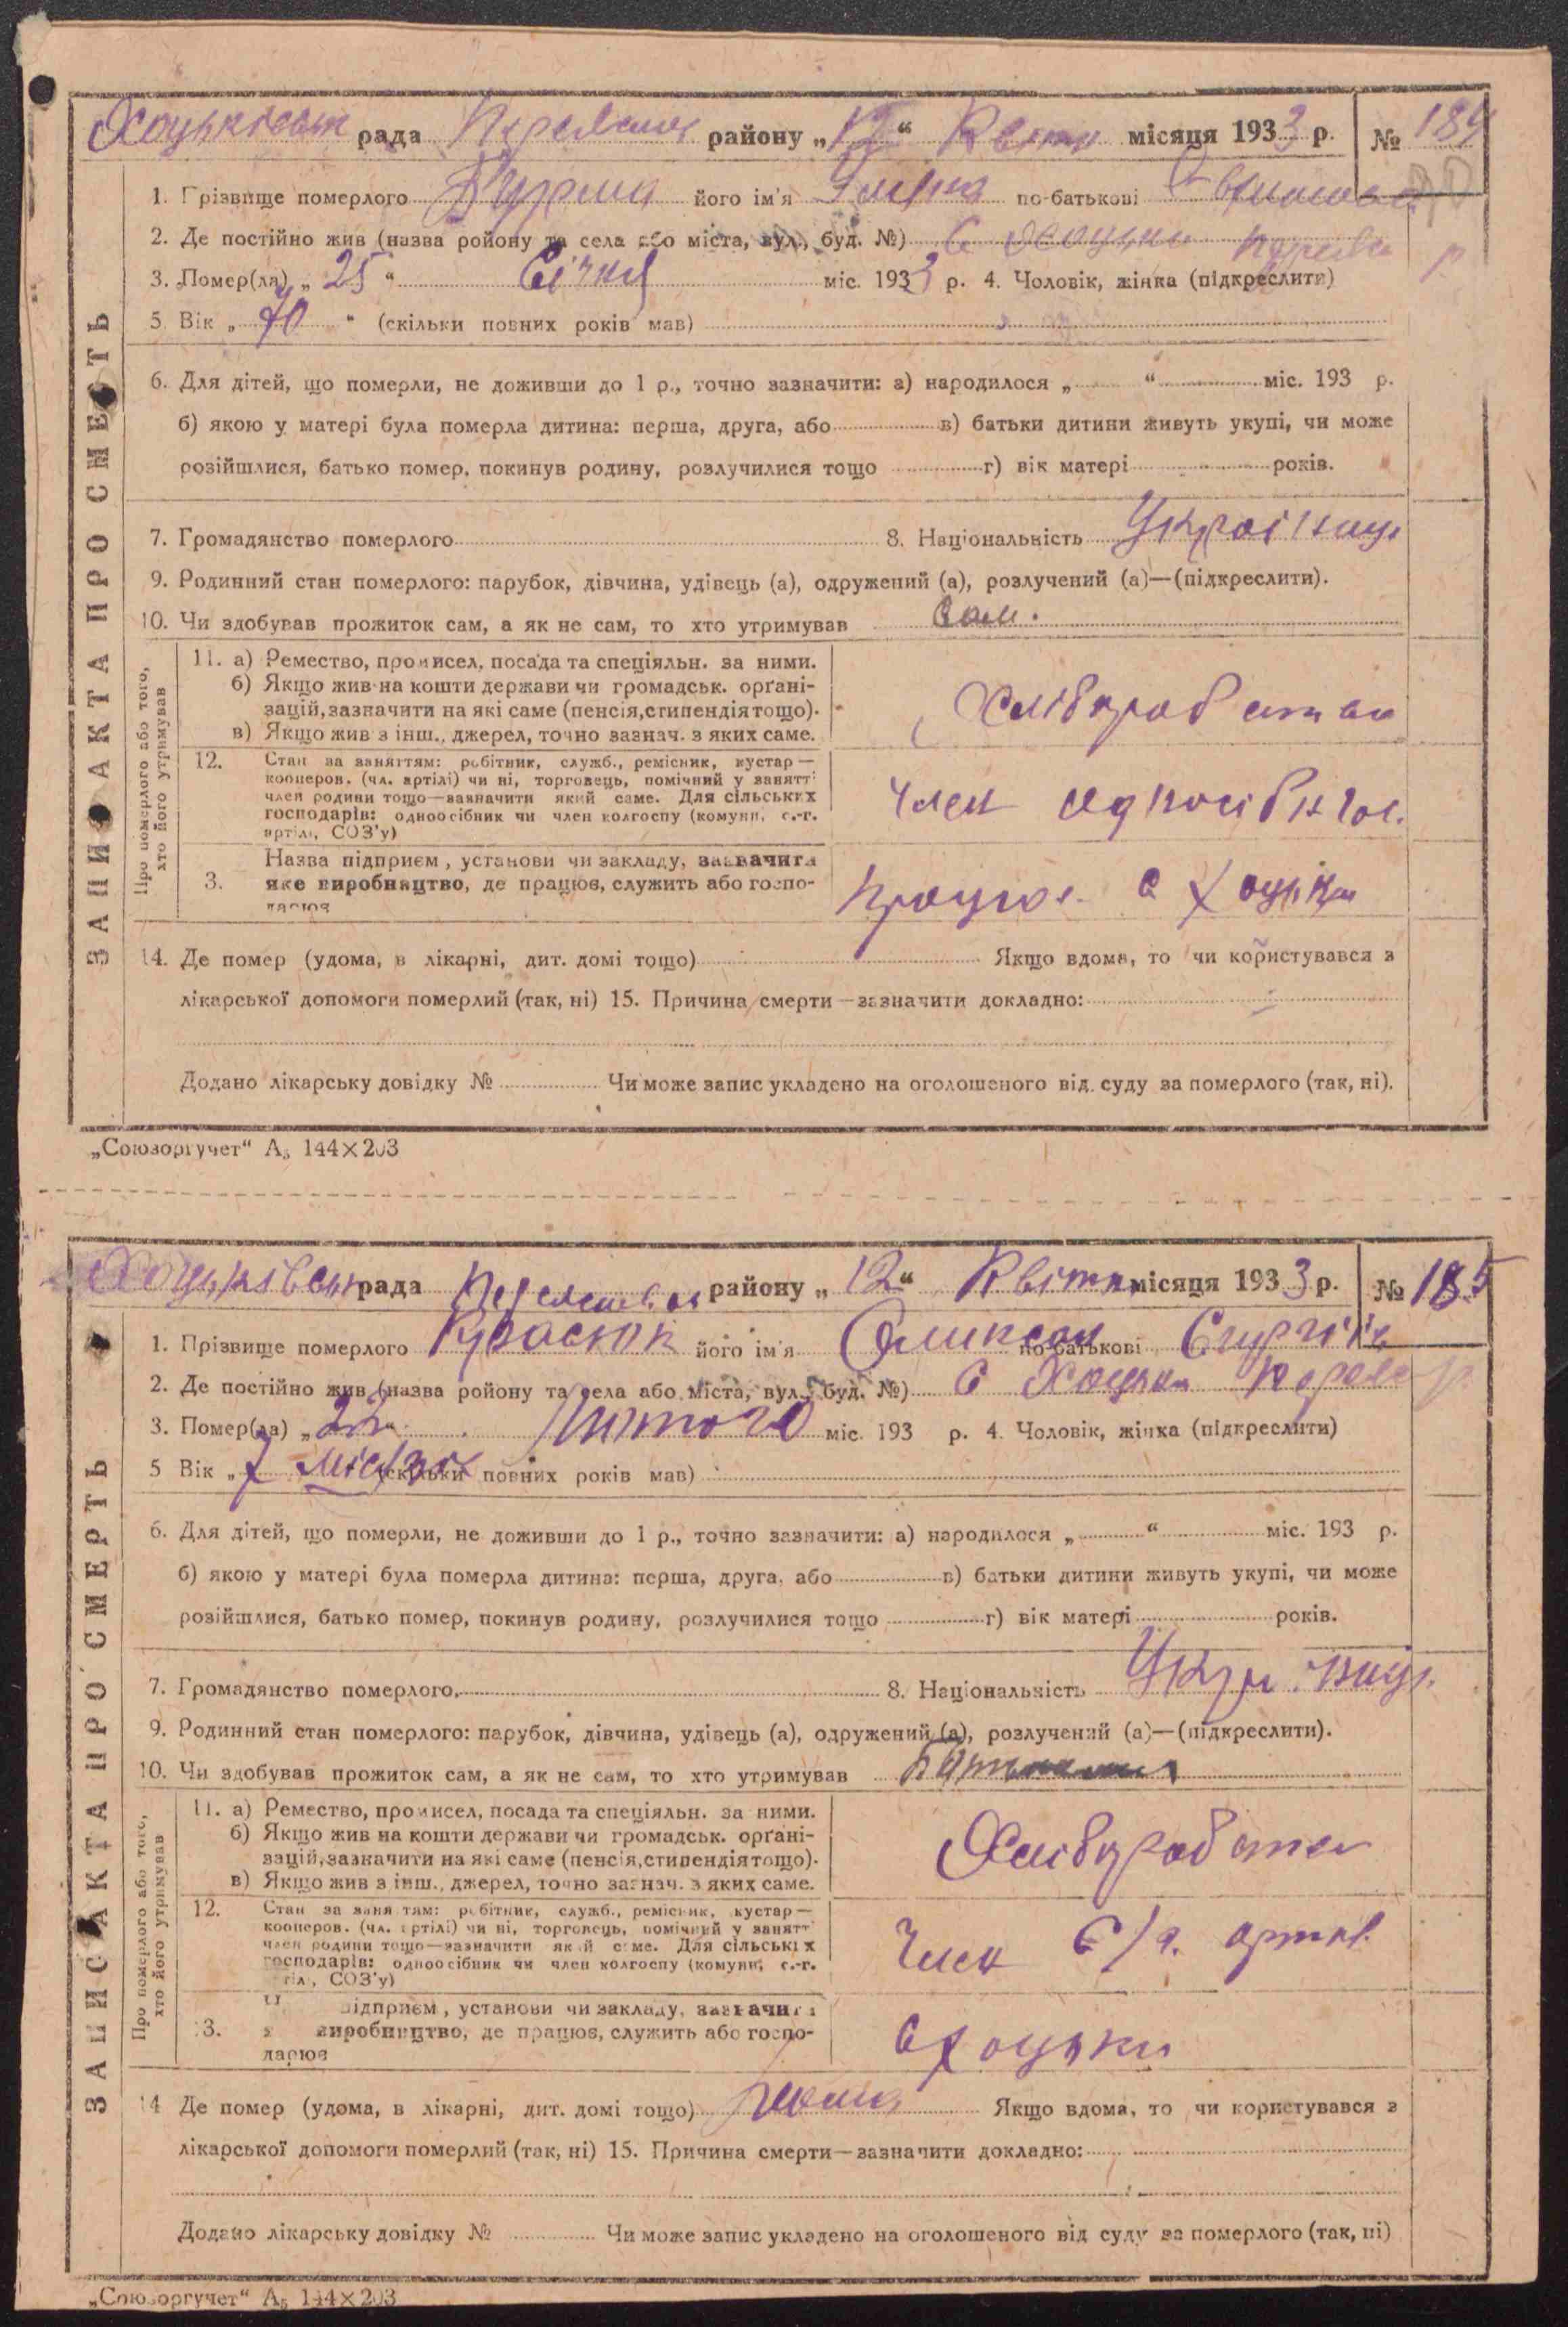 Хоцьківськ рада Переяслав району „12“ Квітн місяця 1933 р. № 184
1. Прізвище померлого його ім'я по-батькові
2. Де постійно жив (назва ройону та села або міста, вул., буд. №) С Хоцьки Переяс р
3. Помер(ла) „25“ Січня міс. 1933 р. 4. Чоловік, жінка (підкреслити)
5 Вік „70“ (скільки повних років мав)
6. Для дітей, що померли, не доживши до 1 р., точно зазначити: а) народилося „ “ міс. 193 р.
б) якою у матері була померла дитина: перша, друга, або в) батьки дитини живуть укупі, чи може
розійшлися, батько помер, покинув родину, розлучилися тощо г) вік матері років.
7. Громадянство померлого 8. Національність Україниц
9. Родинний стан померлого: парубок, дівчина, удівець (а), одружений (а), розлучений (а)—(підкреслити).
10. Чи здобував прожиток сам, а як не сам, то хто утримував Сам.
ЗАПИС АКТА ПРО СМЕРТЬ
Про померлого або того, хто його утримував
11. а) Ремество, промисел, посада та спеціяльн. за ними.
б) Якщо жив на кошти держави чи громадськ. органі-
зацій, зазначити на які саме (пенсія, стипендія тощо).
в) Якщо жив з інш., джерел, точно зазнач. з яких саме.
Хліборобство
12. Стан за заняттям: робітник, служб., ремісник, кустар—
кооперов. (чл. артілі) чи ні, торговець, помічний у занятт
член родини тощо—зазначити який саме. Для сільських
господарів: одноосібник чи член колгоспу (комуни, с.-г.
артілі, СОЗ'у)
Член одноосібног.
3. Назва підприєм, установи чи закладу, зазначити
яке виробництво, де працює, служить або госпо-
дарює
працює. с Хоцьки
14. Де помер (удома, в лікарні, дит. домі тощо) Якщо вдома, то чи користувався з
лікарської допомоги померлий (так, ні) 15. Причина смерти—зазначити докладно:
Додано лікарську довідку № Чи може запис укладено на оголошеного від. суду за померлого (так, ні).
„Союзоргучет“ А₅ 144×203
Хоцьківськ рада Переяславськ району „12“ Квітн місяця 1933 р. № 185
1. Прізвище померлого Красюк його ім'я Оликсан по-батькові
2. Де постійно жив (назва ройону та села або міста, вул., буд. №) С Хоцьки Переяс р
3. Помер(ла) „22 Лютого міс. 193 р. 4. Чоловік, жінка (підкреслити)
5 Вік „7 місяців (скільки повних років мав)
6. Для дітей, що померли, не доживши до 1 р., точно зазначити: а) народилося „ “ міс. 193 р.
б) якою у матері була померла дитина: перша, друга, або в) батьки дитини живуть укупі, чи може
розійшлися, батько помер, покинув родину, розлучилися тощо г) вік матері років.
7. Громадянство померлого. 8. Національність
9. Родинний стан померлого: парубок, дівчина, удівець (а), одружений (а), розлучений (а)—(підкреслити).
10. Чи здобував прожиток сам, а як не сам, то хто утримував
ЗАПИС АКТА ПРО СМЕРТЬ
Про померлого або того, хто його утримував
11. а) Ремество, промисел, посада та спеціяльн. за ними.
б) Якщо жив на кошти держави чи громадськ. органі-
зацій, зазначити на які саме (пенсія, стипендія тощо).
в) Якщо жив з інш., джерел, точно зазнач. з яких саме.
Хліборобство
12. Стан за заняттям: робітник, служб., ремісник, кустар—
кооперов. (чл. артілі) чи ні, торговець, помічний у занятт
член родини тощо—зазначити який саме. Для сільських
господарів: одноосібник чи член колгоспу (комуни, с.-г.
артілі, СОЗ'у)
Член С/г. артіл.
13. підприєм, установи чи закладу, зазначити
виробництво, де працює, служить або госпо-
дарює
с Хоцьки
14 Де помер (удома, в лікарні, дит. домі тощо) Якщо вдома, то чи користувався з
лікарської допомоги померлий (так, ні) 15. Причина смерти—зазначити докладно:
Додано лікарську довідку № Чи може запис укладено на оголошеного від суду за померлого (так, ні)
„Союзоргучет“ А₅ 144×203